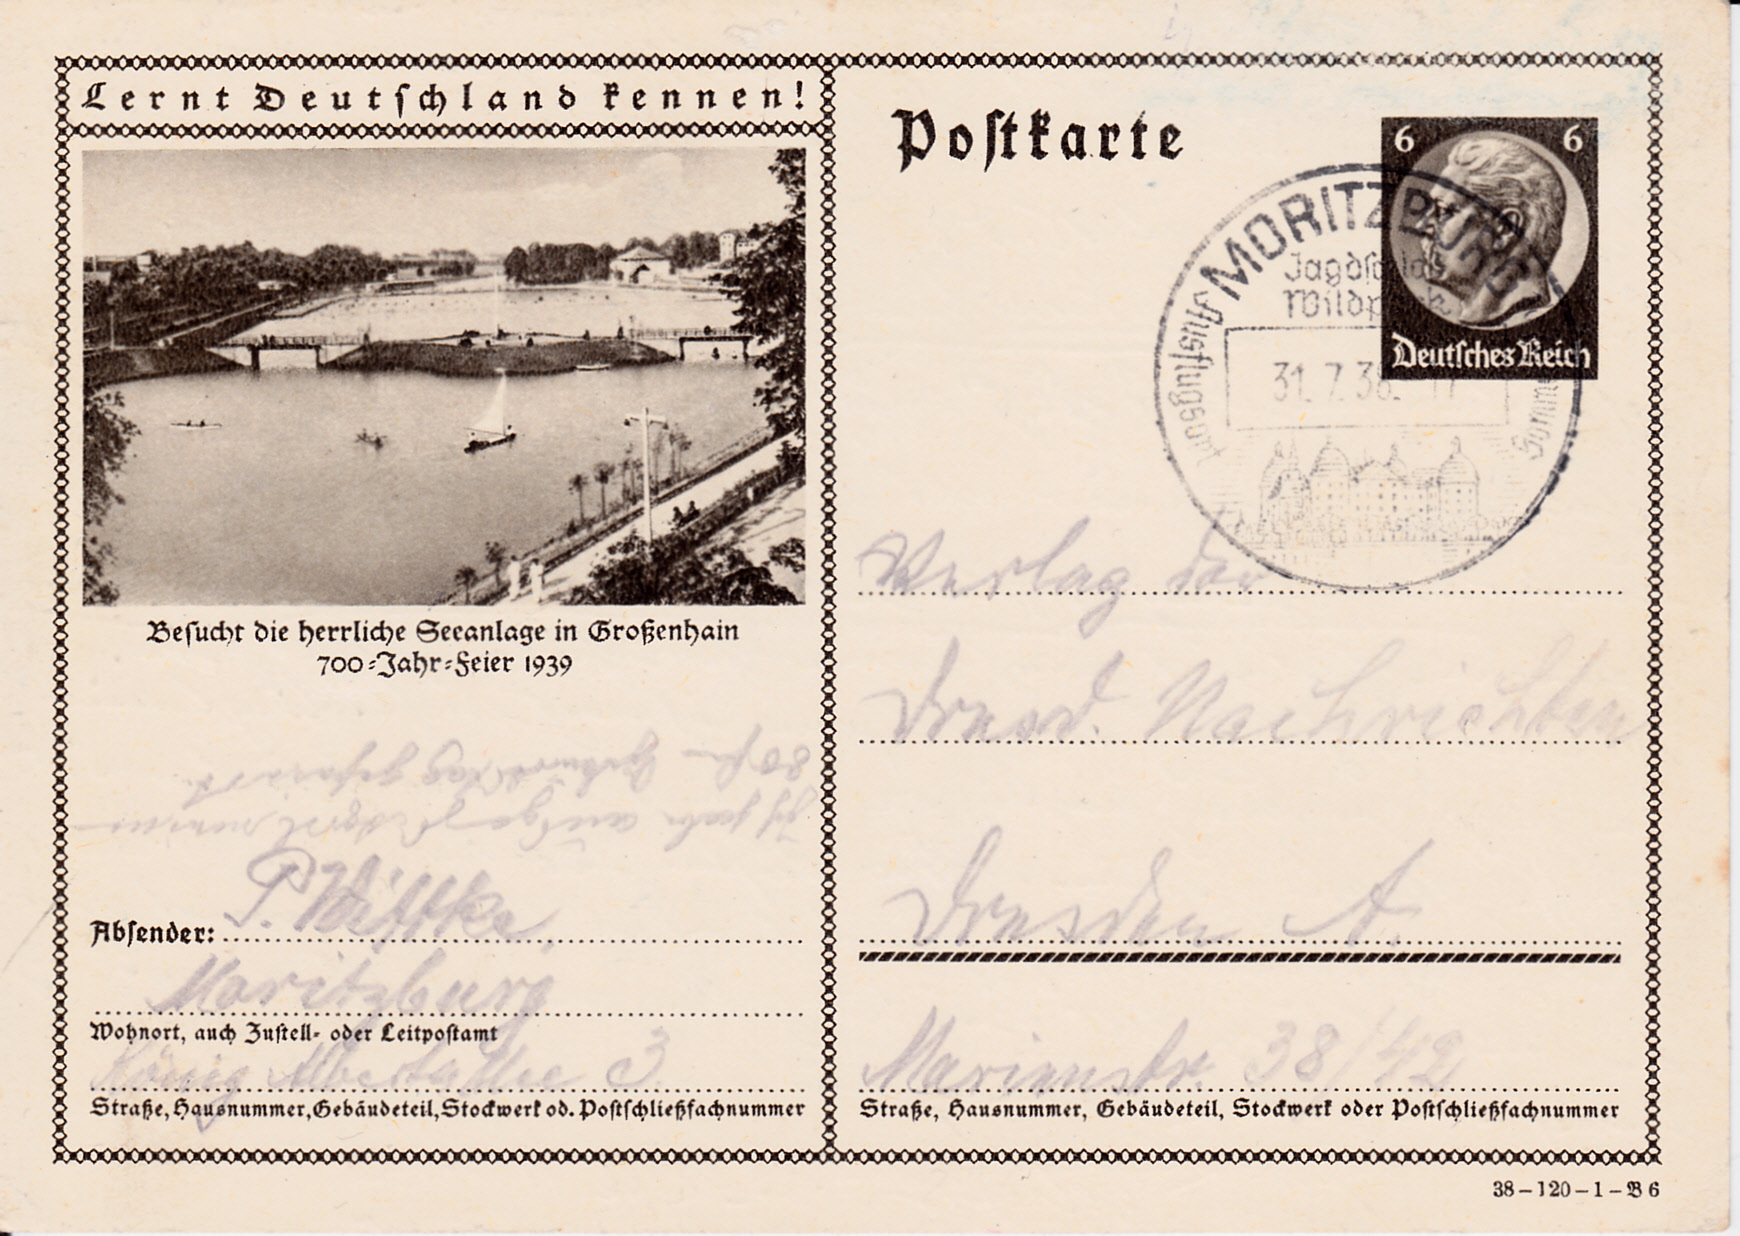 Lernt Deutschland kennen!
Besucht die herrliche Seeanlage in Großenhain
700-Jahr-Feier 1939
P. Wittke
Absender:
Moritzburg
Wohnort, auch Zustell- oder Leitpostamt
König Albertallee 3
Straße, Hausnummer, Gebäudeteil, Stockwerk od. Postschließfachnummer
Postkarte
6 6
Deutsches Reich
MORITZBURG
Jagdschloss
Wildpark
Ausflugsort
31.7.38.-17
Verlag der
Dresd. Nachrichten
Dresden A.
Marienstr. 38/42
Straße, Hausnummer, Gebäudeteil, Stockwerk oder Postschließfachnummer
38-120-1-B 6